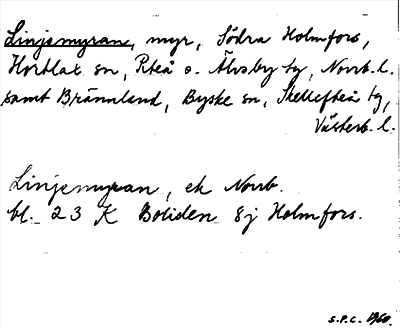 Linjemyran, myr, Södra Holmfors,
Hortlax sn, Piteå o. Älvsby tg, Norrb. l.
samt Brännland, Byske sn, Skellefteå tg,
Västerb. l.
Linjemyran, ek Norrb.
bl. 23 K Boliden 8j Holmfors.
S.P.C. 1960.